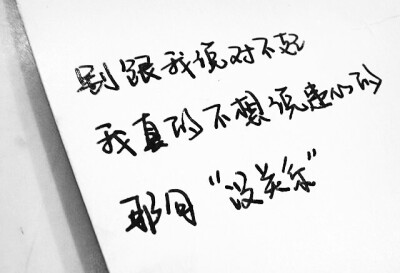 别跟我说对不起
我真的不想说违心的
那句“没关系”